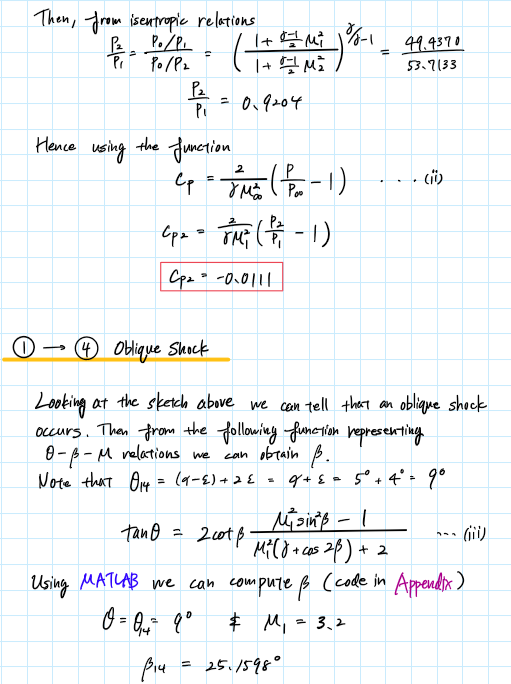 Then, from isentropic relations
P₂/P₁ = (P₀/P₁)/(P₀/P₂) = ((1 + (γ-1)/2 M₁²)/(1 + (γ-1)/2 M₂²))^(γ/γ-1) = 49.4370/53.7133
P₂/P₁ = 0.9204
Hence using the function
Cp = 2/(γM∞²) (P/P∞ - 1) . . . (ii)
Cp₂ = 2/(γM₁²) (P₂/P₁ - 1)
Cp₂ = -0.0111
① → ④ Oblique Shock
Looking at the sketch above we can tell that an oblique shock
occurs. Then from the following function representing
θ-β-M relations we can obtain β.
Note that θ₁₄ = (α-ε)+2ε = α+ε = 5° + 4° = 9°
tanθ = 2cotβ (M₁²sin²β - 1)/(M₁²(γ+cos2β)+2) ... (iii)
Using MATLAB we can compute β (code in Appendix)
θ = θ₁₄ = 9° & M₁ = 3.2
β₁₄ = 25.1598°